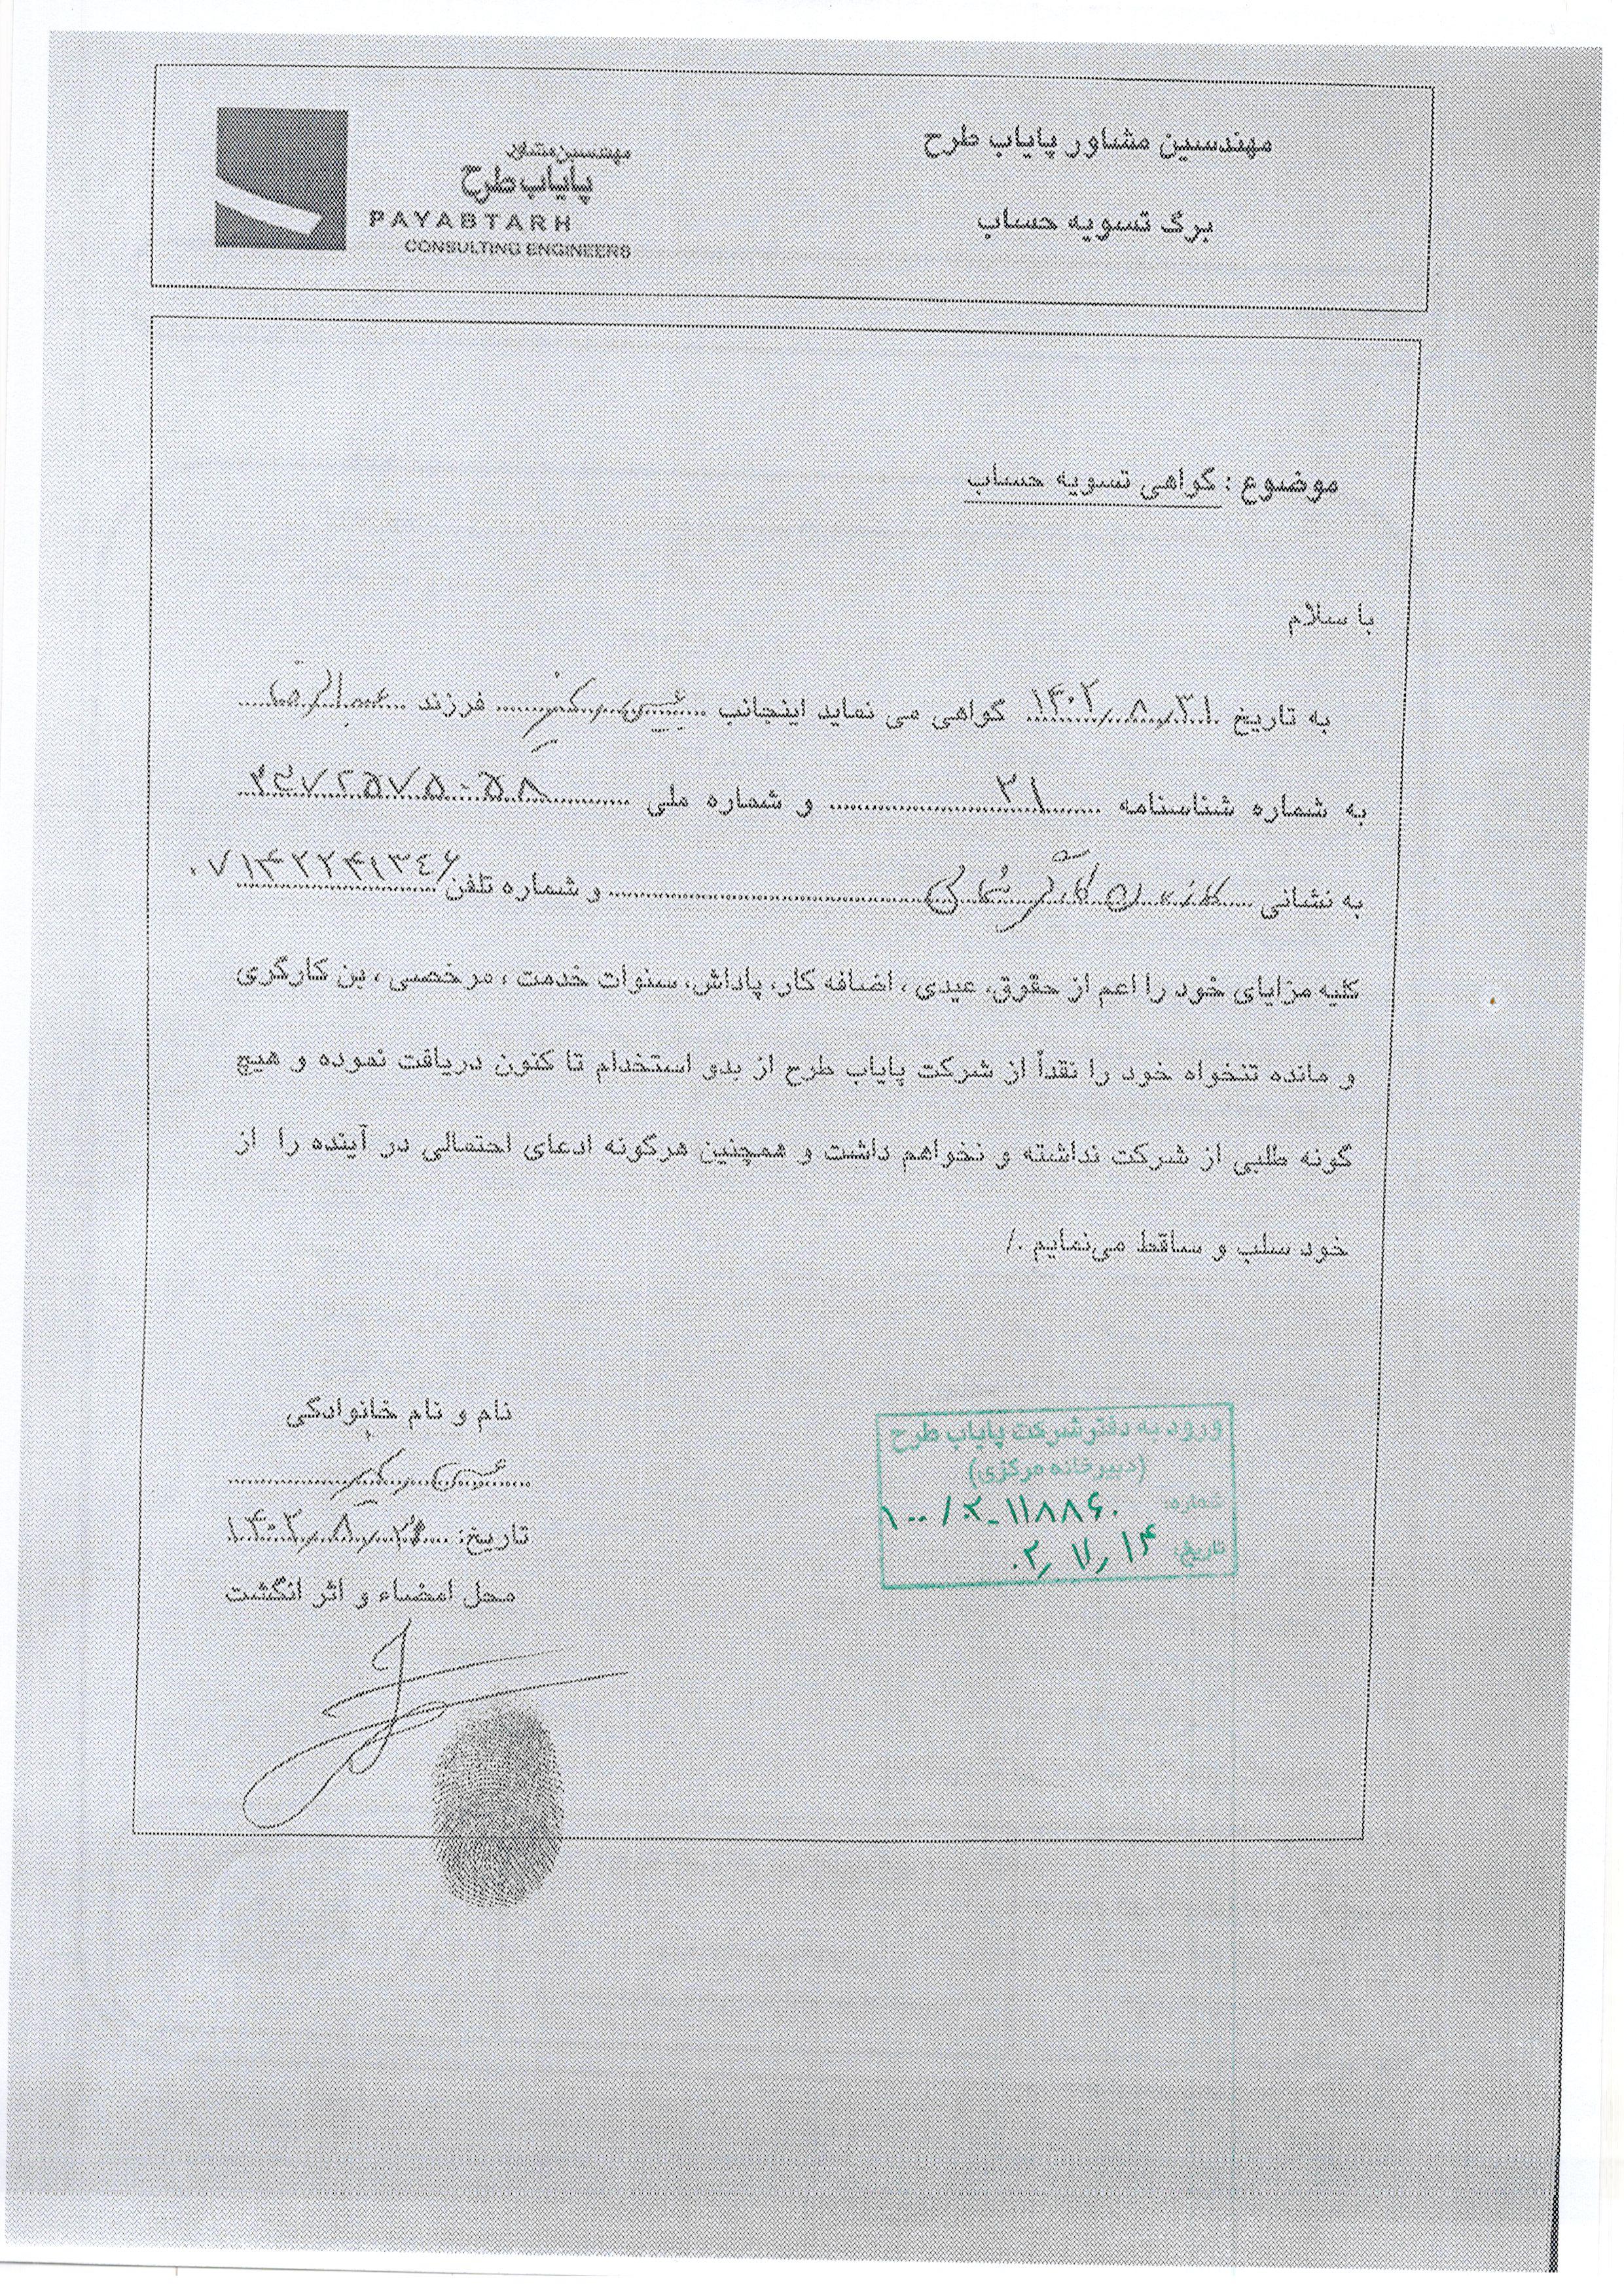 مهندسین مشاور پایاب طرح
برگ تسویه حساب
مهندسین مشاور
پایاب طرح
PAYABTARH
CONSULTING ENGINEERS
موضوع : گواهی تسویه حساب
با سلام
به تاریخ ۱۴۰۲٫۸٫۳۱ گواهی می نماید اینجانب فرزند عبدالرضا
به شماره شناسنامه ۳۱ و شماره ملی
به نشانی و شماره تلفن
کلیه مزایای خود را اعم از حقوق، عیدی ، اضافه کار، پاداش، سنوات خدمت ، مرخصی ، بن کارگری
و مانده تنخواه خود را نقداً از شرکت پایاب طرح از بدو استخدام تا کنون دریافت نموده و هیچ
گونه طلبی از شرکت نداشته و نخواهم داشت و همچنین هرگونه ادعای احتمالی در آینده را از
خود سلب و ساقط می‌نمایم ./
نام و نام خانوادگی
تاریخ:
محل امضاء و اثر انگشت
ورود به دفتر شرکت پایاب طرح
(دبیرخانه مرکزی)
شماره: ۱۰۰/۰۲-۱۱۸۸۶۰
تاریخ: ۰۲٫۱۱٫۱۴